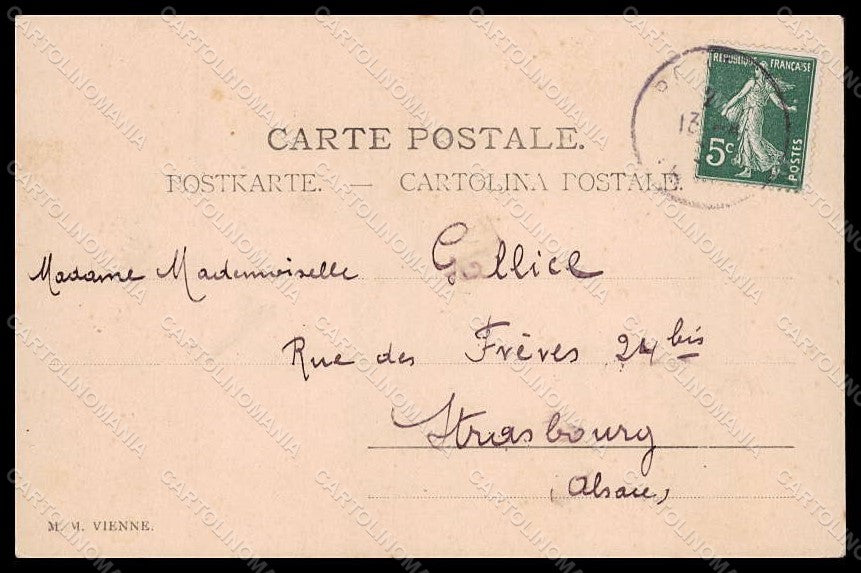 REPUBLIQUE FRANÇAISE
5c
POSTES
13
CARTE POSTALE.
POSTKARTE. — CARTOLINA POSTALE.
Madame Mademoiselle Gallice
Rue des Frères 24 bis
Strasbourg
(Alsace)
M. M. VIENNE.
CARTOLINOMANIA